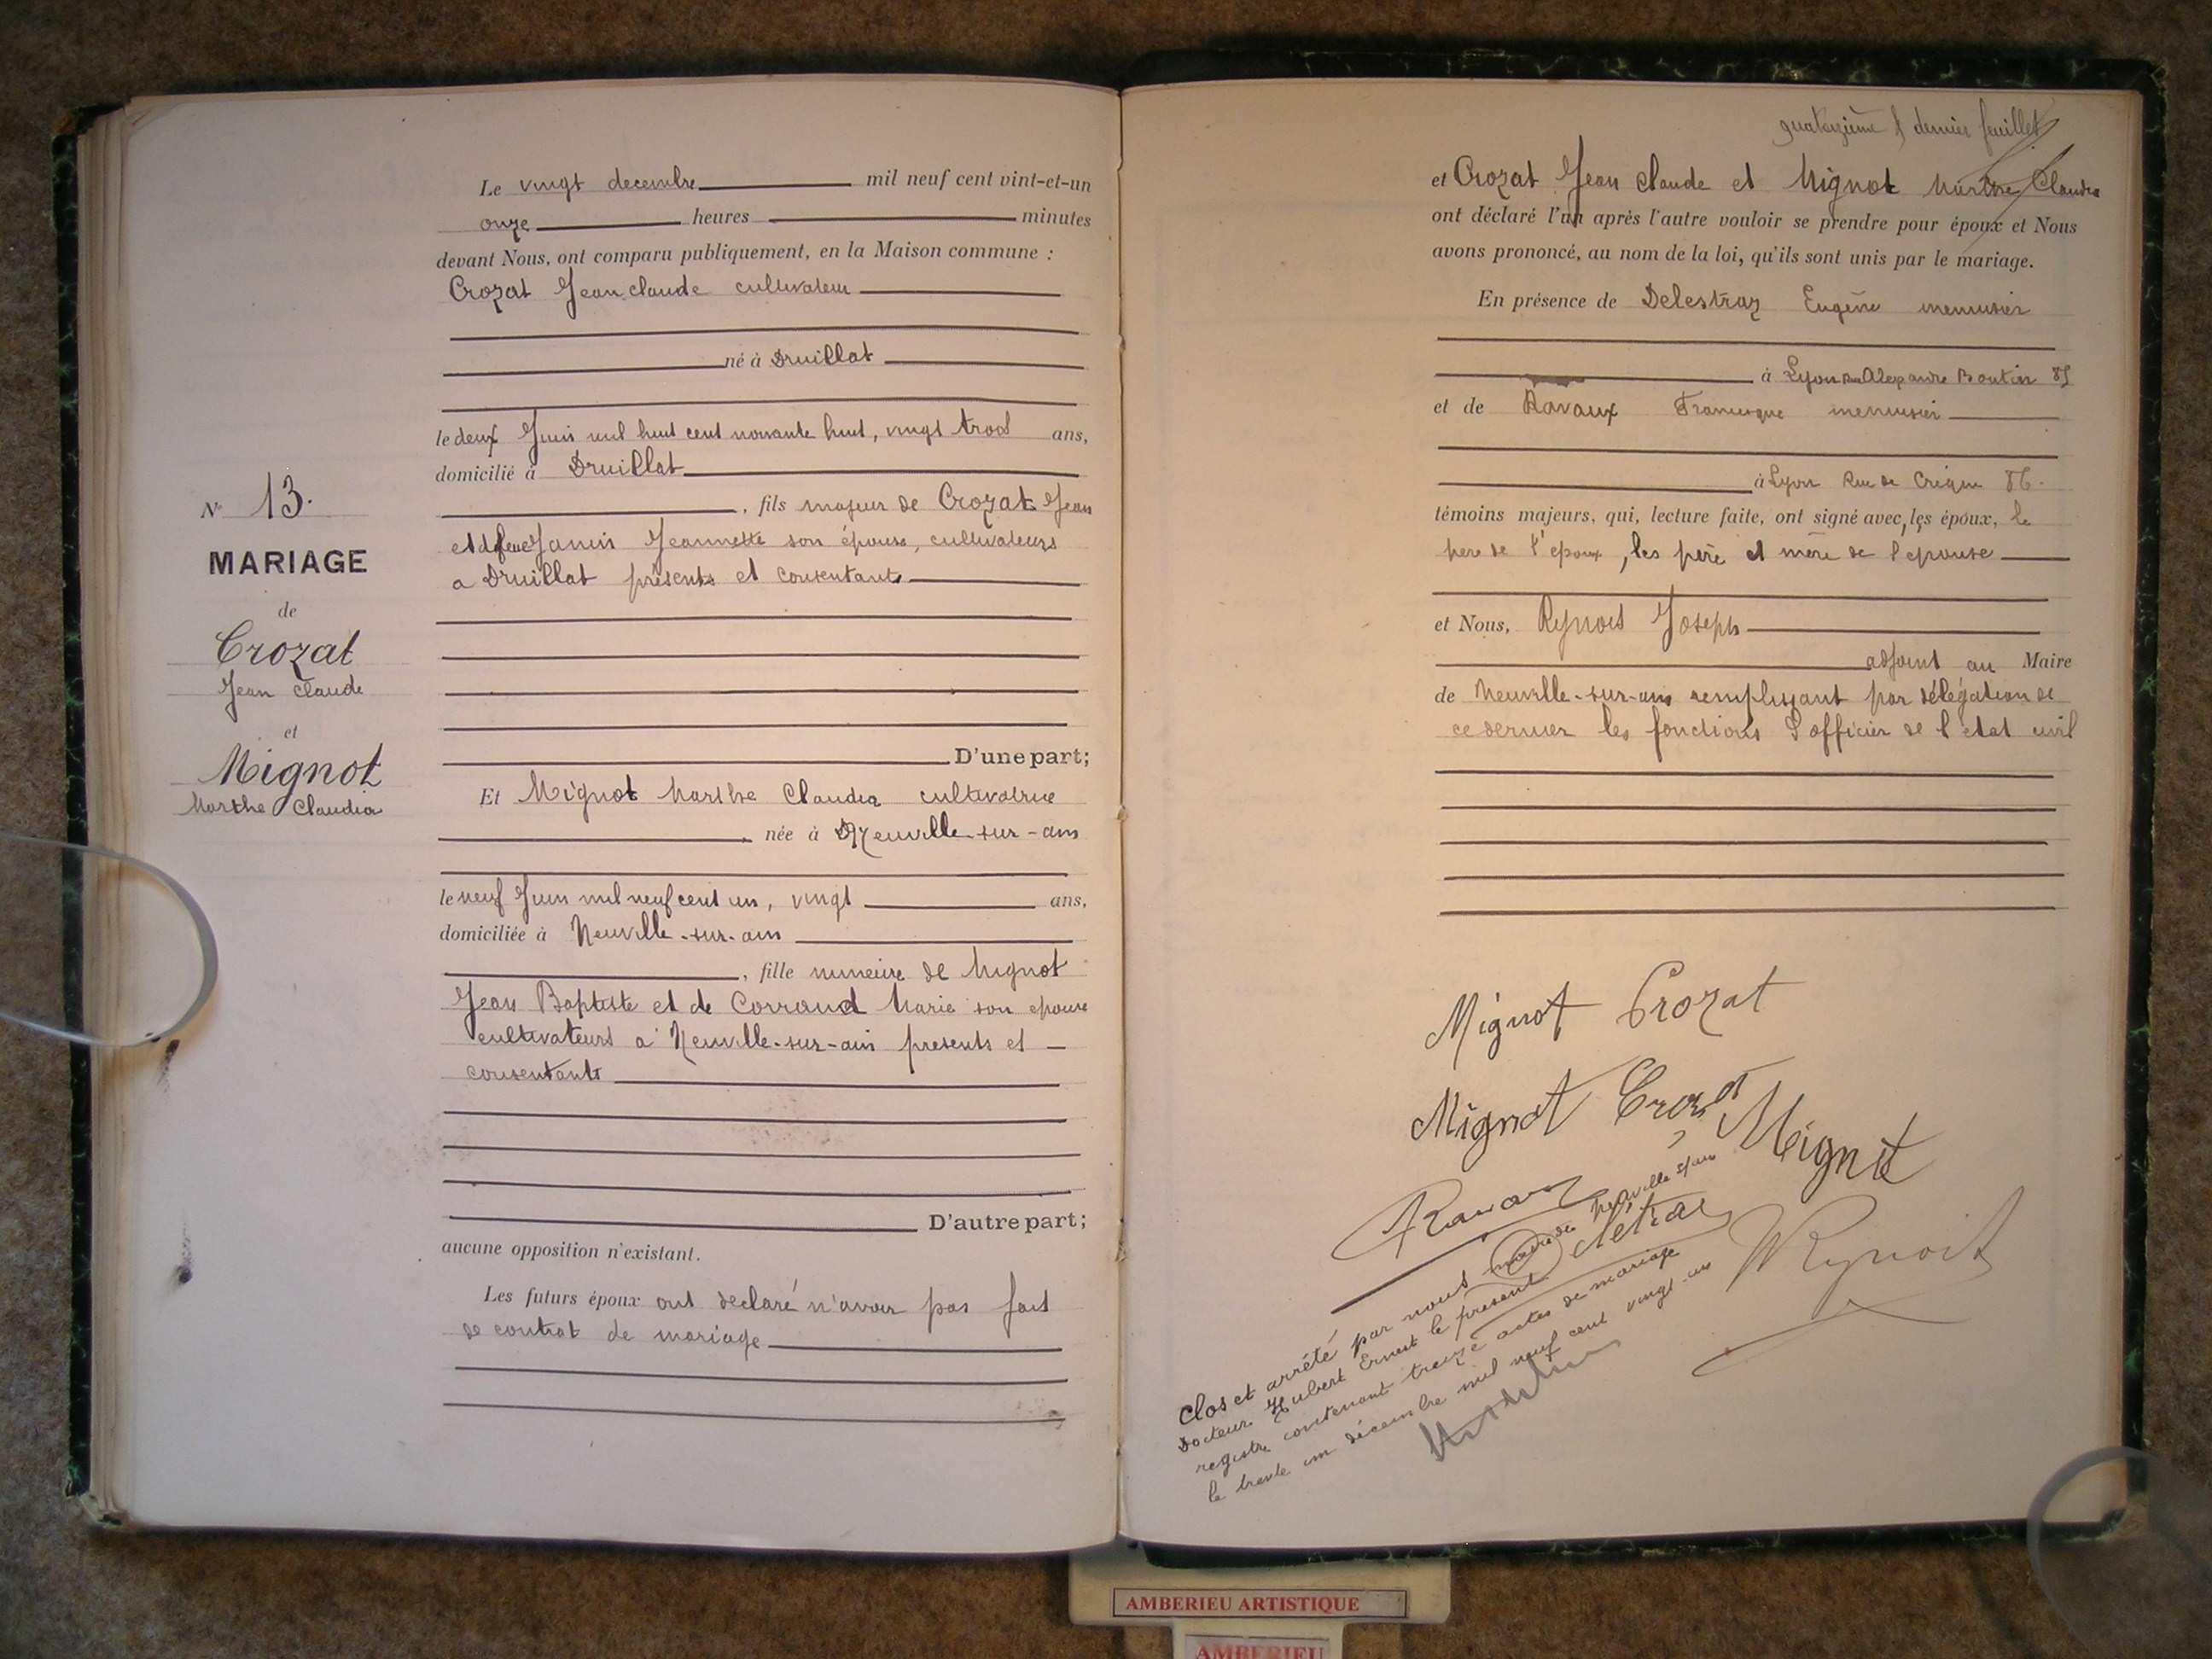 Le vingt decembre mil neuf cent vint-et-un
onze heures minutes
devant Nous, ont comparu publiquement, en la Maison commune :
Crozat Jean claude cultivateur
né à Druillat
le deux Juin mil huit cent novante huit, vingt trois ans,
domicilié à Druillat
, fils majeur de Crozat Jean
et de feue Janin Jeannette son épouse, cultivateurs
a Druillat présents et consentants
N° 13.
MARIAGE
de
Crozat
Jean Claude
et
Mignot
Marthe Claudia
D'une part;
Et Mignot Marthe Claudia cultivatrice
née à Neuville-sur-ain
le neuf Juin mil neuf cent un, vingt ans,
domiciliée à Neuville-sur-ain
, fille mineure de Mignot
Jean Baptiste et de Corraud Marie son epouse
cultivateurs a Neuville-sur-ain presents et
consentants
D'autre part;
aucune opposition n'existant.
Les futurs époux ont declaré n'avoir pas fait
de contrat de mariage
quatorzième & dernier feuillet
et Crozat Jean Claude et Mignot Marthe Claudia
ont déclaré l'un après l'autre vouloir se prendre pour époux et Nous
avons prononcé, au nom de la loi, qu'ils sont unis par le mariage.
En présence de Delestraz Eugène menuisier
à Lyon Rue Boutin
et de Ravaux Francisque menuisier
à Lyon Rue de Créqui
témoins majeurs, qui, lecture faite, ont signé avec les époux, le
pere de l'epoux, les père et mère de l'epouse
et Nous, Reynoit Joseph
adjoint au Maire
de Neuville-sur-ain remplissant par délégation de
ce dernier les fonctions d'officier de l'etat civil
Mignot Crozat
Mignot Crozat Mignot
Ravaux
Reynoit
Clos et arrêté par nous maire de Neuville s/ain
Docteur Hubert Ernest le présent
registre contenant treize actes de mariage
le trente un décembre mil neuf cent vingt-un
AMBERIEU ARTISTIQUE
AMBERIEU